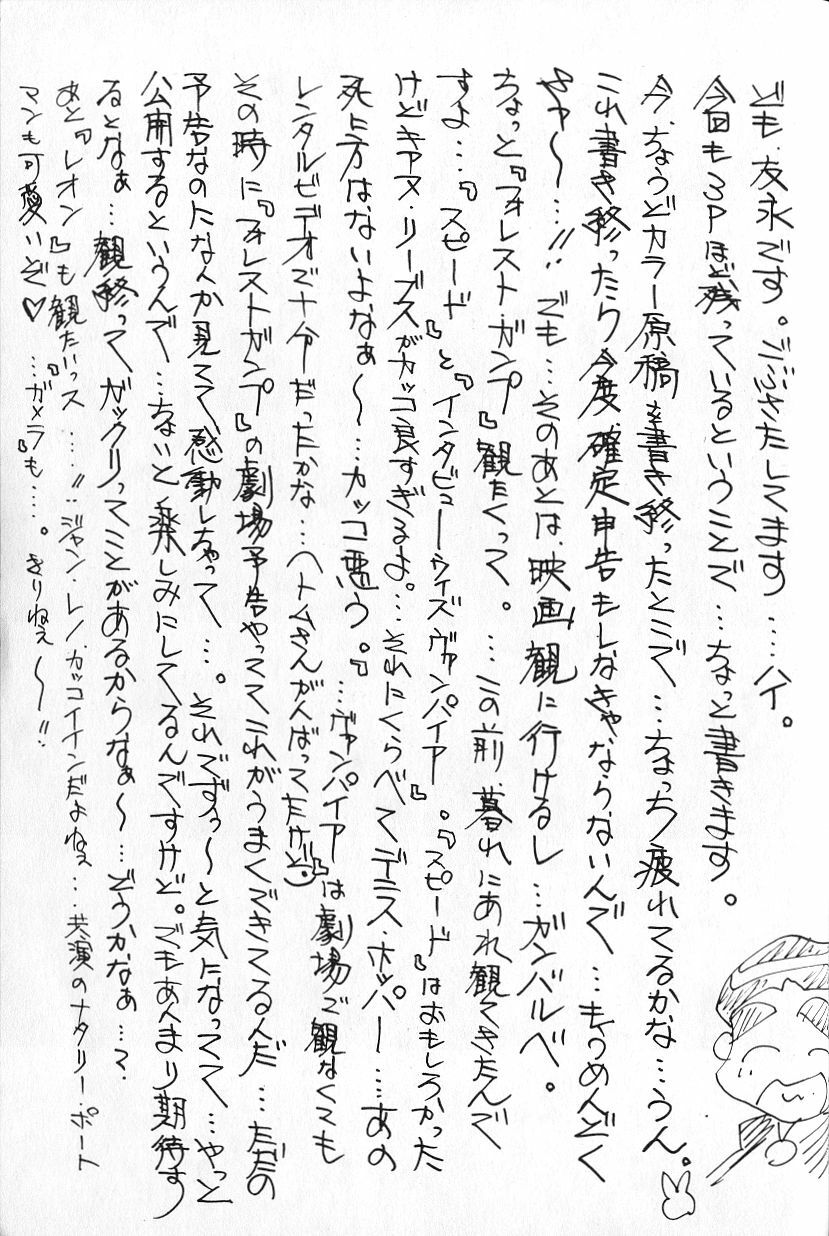 ども、友永です。ごぶさたしてます……ハイ。
今回も3Pほど残っているということで…ちょっと書きます。
今、ちょうどカラー原稿を書き終ったとこで…ちょっち疲れてるかな…うん。
これ書き終ったら今度、確定申告もしなきゃならないんで…もうめんどく
さァ〜…!! でも…そのあとは、映画観に行けるし…ガンバルベ。
ちょっと『フォレスト・ガンプ』観たくって。…この前、暮れにあれ観てきたんで
すよ…『スピード』と『インタビュー・ウィズ・ヴァンパイア』。『スピード』はおもしろかった
けどキアヌ・リーブスがカッコ良すぎるよ。…それにくらべてデニス・ホッパー……あの
死に方はないよなぁ〜…カッコ悪う。『…ヴァンパイア』は劇場で観なくても
レンタルビデオで十分だったかな…ヘトムさんがんばってたけど
その時に『フォレストガンプ』の劇場予告やっててこれがうまくできてるんだ…ただの
予告なのになんか見てて、感動しちゃって…。それでずぅ〜と気になってて…やっと
公開するというんで…ちょいと楽しみにしてるんですけど。でもあんまり期待す
るとなぁ…観終ってガックリってことがあるからなぁ〜…どうかなぁ…て.
あと『レオン』も観たいっス……!! ジャン・レノ、カッコイインだよねぇ…共演のナタリー・ポート
マンも可愛いぞ♡…『ガメラ』も……。きりねぇ〜!!